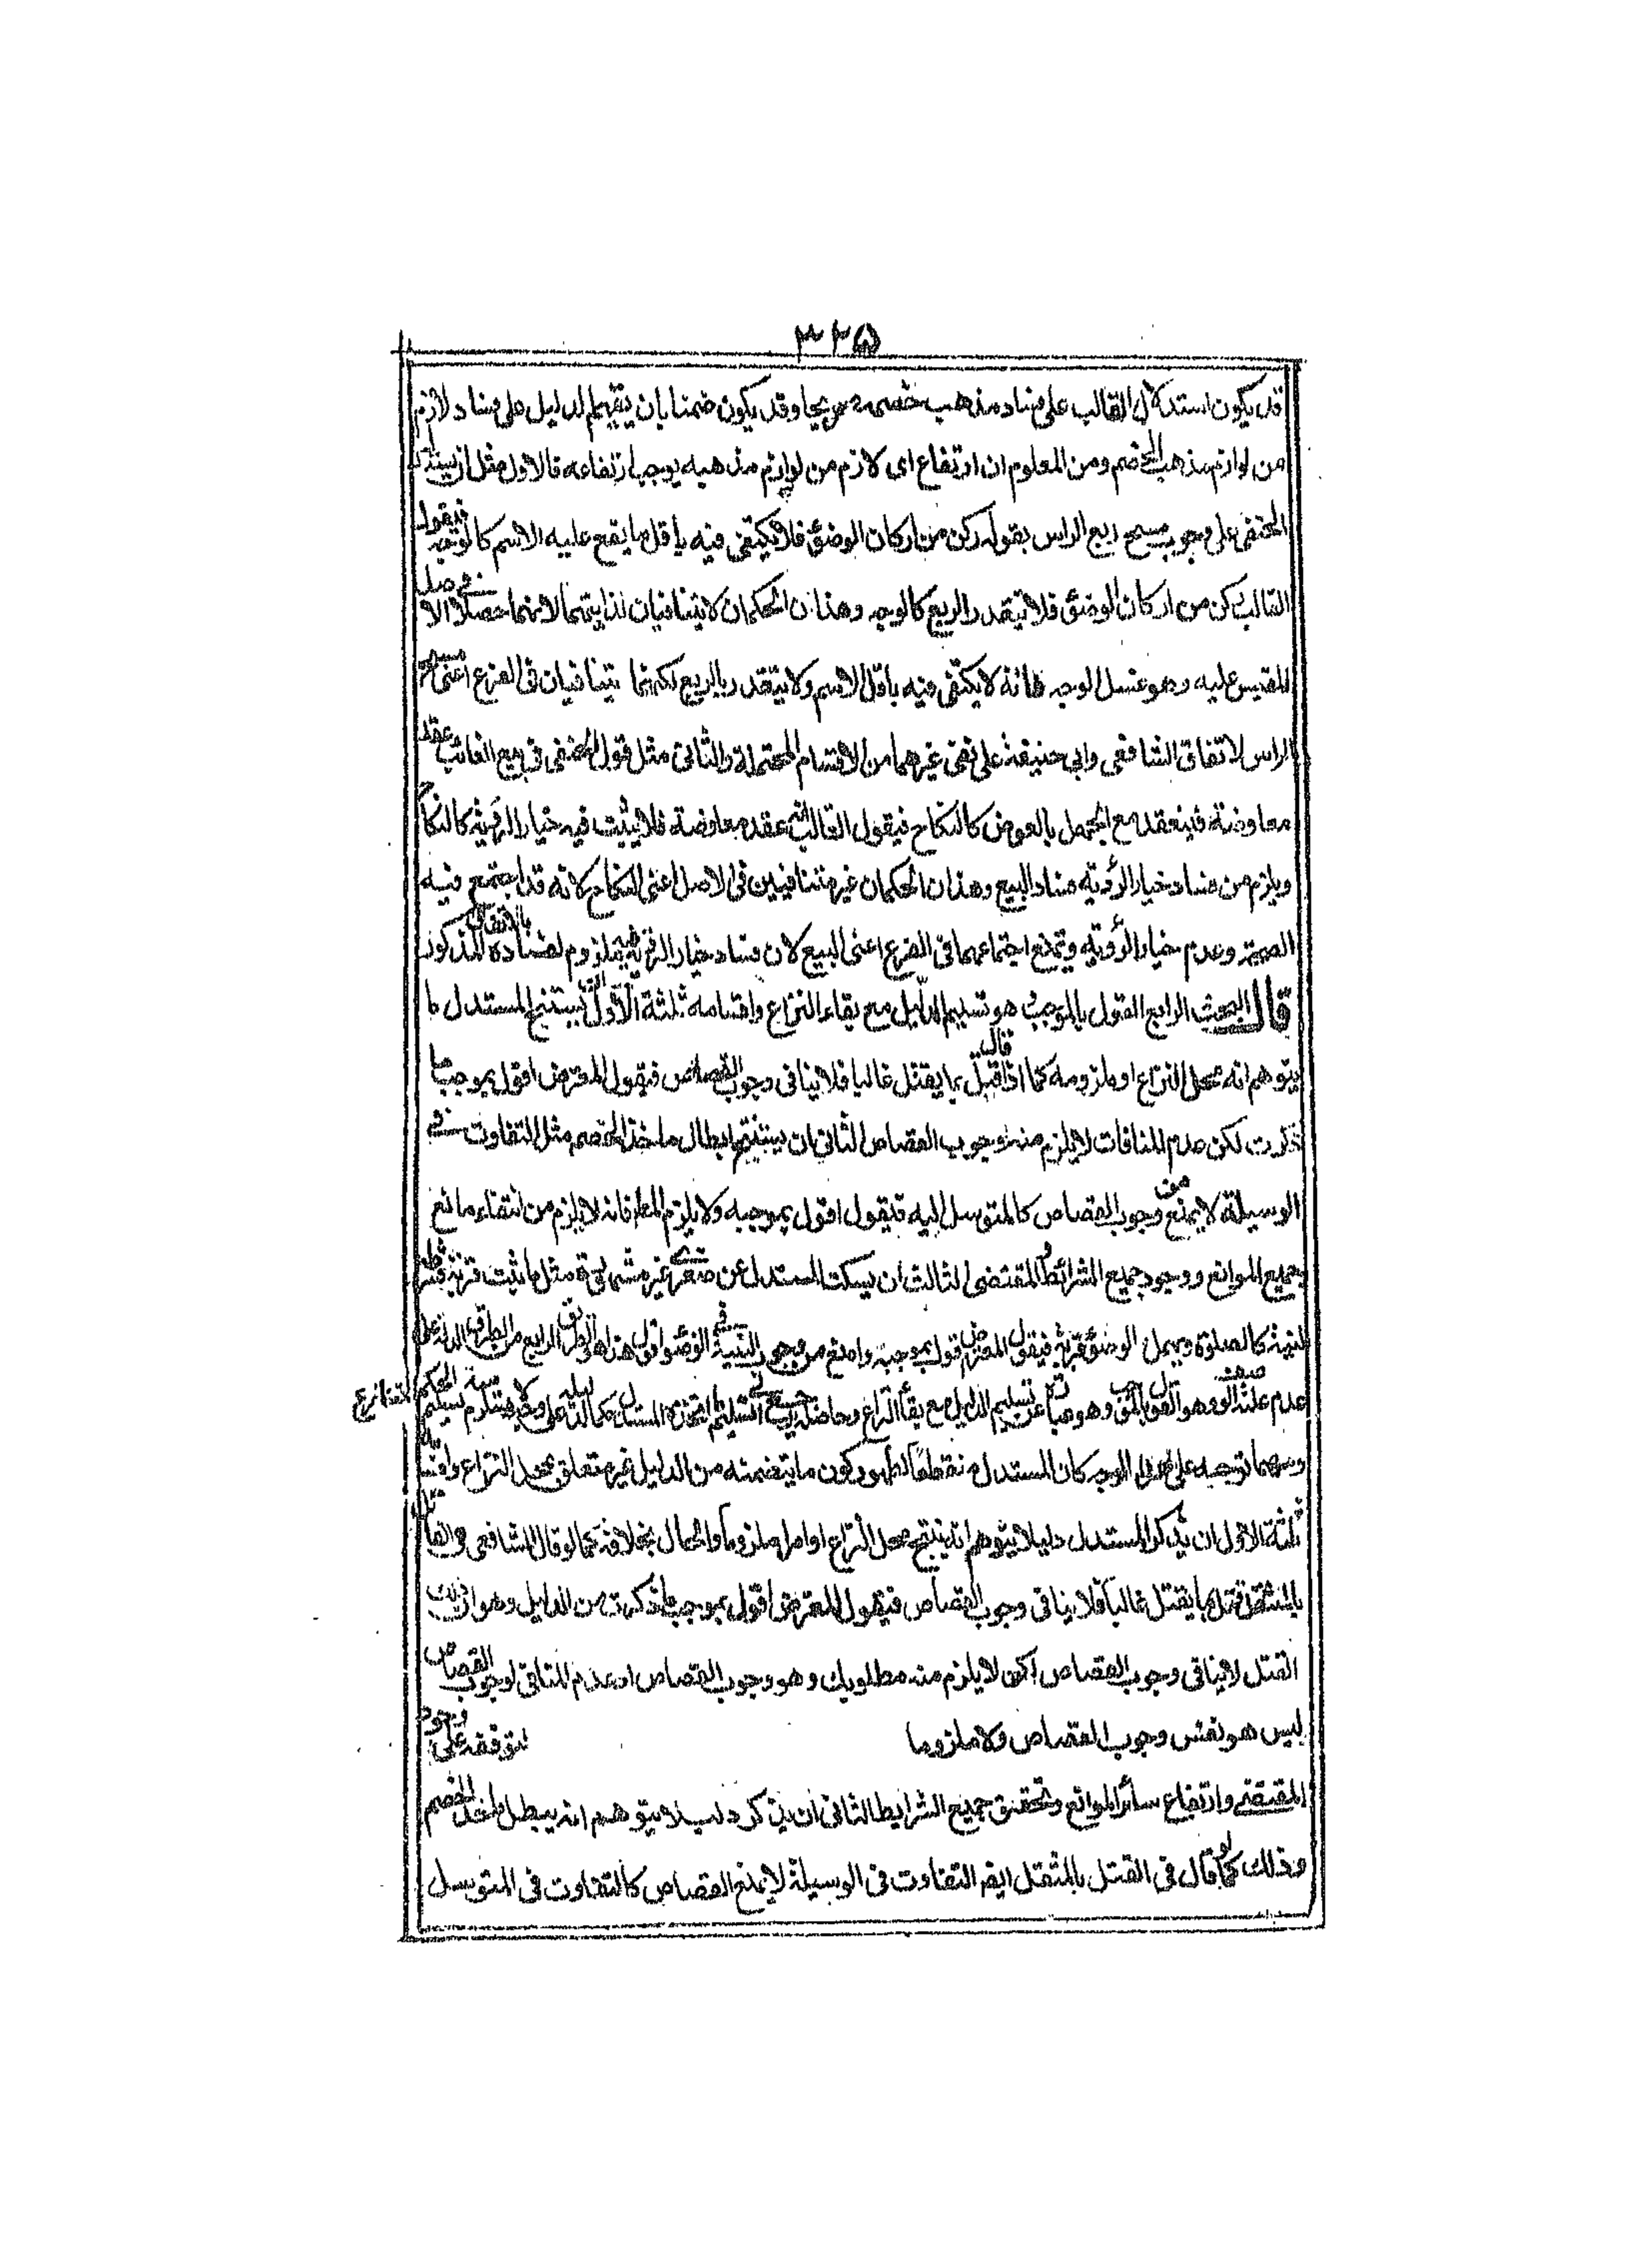 ٣٢٥
قد يكون استدلال القالب على فساد مذهب خصمه صريحا وقد يكون ضمنا بان يقيم الدليل على فساد لازم
من لوازم مذهب الخصم ومن المعلوم ان ارتفاع اى لازم من لوازم مذهبه يوجب ارتفاعه فالاول مثل ان يستدل
الحنفى على وجوب مسح ربع الراس بقوله ركن من اركان الوضوء فلا يكتفى فيه باقل ما يقع عليه الاسم كالوجه فيقول
القالب ركن من اركان الوضوء فلا يتقدر بالربع كالوجه وهذان الحكمان لا يتنافيان لذاتيهما لانهما حصلا فى الاصل
المقيس عليه وهو غسل الوجه فانه لا يكتفى فيه باقل الاسم ولا يتقدر بالربع لكنهما يتنافيان فى الفرع اعنى مسح
الراس لاتفاق الشافعى وابى حنيفة على نفى غيرهما من الاقسام المحتملة والثانى مثل قول الحنفى فى بيع الغائب عقد
معاوضة فينعقد مع الجهل بالعوض كالنكاح فيقول القالب عقد معاوضة فلا يثبت فيه خيار الرؤية كالنكاح
ويلزم من فساد خيار الرؤية فساد البيع وهذان الحكمان غير متنافيين فى الاصل اعنى النكاح كانه قد اجتمع فيه
الصحة وعدم خيار الرؤية ويمتنع اجتماعهما فى الفرع اعنى البيع لان فساد خيار الرؤية ملزوم لفساده بالاتفاق المذكور
قال البحث الرابع القول بالموجب هو تسليم الدليل مع بقاء النزاع واقسامه ثلثة الاول ان يستنتج المستدل ما
يتوهم انه محل النزاع او ملزومه كما اذا قال قتل بما يقتل غالبا فلا ينافى وجوب القصاص فيقول المعترض اقول بموجب ما
ذكرت لكن عدم المنافات لا يلزم منه وجوب القصاص الثانى ان يستنتج ابطال ماخذ الخصم مثل التفاوت فى
الوسيلة لا يمنع من وجوب القصاص كالمتوسل اليه فيقول اقول بموجبه ولا يلزم المط فانه لا يلزم من انتفاء مانع
جميع الموانع ووجود جميع الشرائط والمقتضى الثالث ان يسكت المستدل عن صغرى غير مشهورة مثل ما يثبت قربة فشرطه
النية كالصلوة ويهمل الوضوء قربة فيقول المعترض اقول بموجبه وامنع من وجوب النية فى الوضوء اقول هذا هو الطريق الرابع من الطرق الدالة على
عدم علية الوصف وهو القول بالموجب وهو عبارة عن تسليم الدليل مع بقاء النزاع وحاصله يرجع الى تسليم ما اتخذه المستدل حكما لدليله على وجه لا يستلزم تسليم الحكم المتنازع
ومهما توجه على هذا الوجه كان المستدل منقطعا لظهور كون ما يتضمنه من الدليل غير متعلق بمحل النزاع واقسامه
ثلثة الاول ان يذكر المستدل دليلا يتوهم انه ينتج محل النزاع او امرا ملزوما والحال بخلافه كما لو قال الشافعى فى القتل
بالمثقل قتل بما يقتل غالبا فلا ينافى وجوب القصاص فيقول المعترض اقول بموجب ما ذكرت من الدليل وهو ان ذلك
القتل لا ينافى وجوب القصاص لكن لا يلزم منه مطلوبك وهو وجوب القصاص اذ عدم المنافى لوجوب القصاص
ليس هو نفس وجوب القصاص ولا ملزوما لتوقفه على وجود
المقتضى وارتفاع سائر الموانع وتحقق جميع الشرايط الثانى ان يذكر دليلا يتوهم انه يبطل ماخذ الخصم
وذلك كما لو قال فى القتل بالمثقل ايضا التفاوت فى الوسيلة لا يمنع القصاص كالتفاوت فى المتوسل